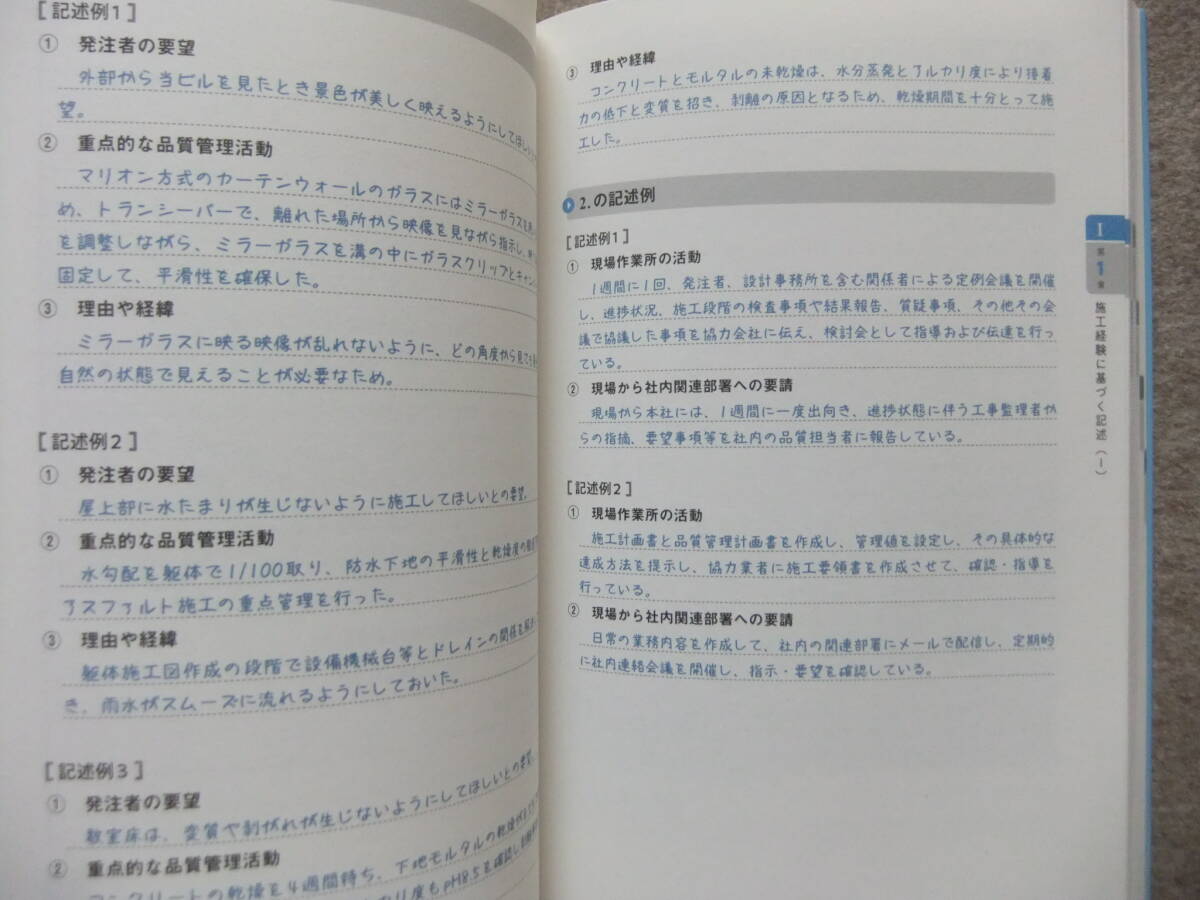 [記述例1]
① 発注者の要望
外部から当ビルを見たとき景色が美しく映えるようにしてほしい
望。
② 重点的な品質管理活動
マリオン方式のカーテンウォールのガラスにはミラーガラスを
め、トランシーバーで、離れた場所から映像を見ながら指示し、
を調整しながら、ミラーガラスを溝の中にガラスクリップと
固定して、平滑性を確保した。
③ 理由や経緯
ミラーガラスに映る映像が乱れないように、どの角度から見ても
自然の状態で見えることが必要なため。
[記述例2]
① 発注者の要望
屋上部に水たまりが生じないように施工してほしいとの要望。
② 重点的な品質管理活動
水勾配を躯体で1/100取り、防水下地の平滑性と乾燥度の
アスファルト施工の重点管理を行った。
③ 理由や経緯
躯体施工図作成の段階で設備機械台等とドレインの関係を
き、雨水がスムーズに流れるようにしておいた。
[記述例3]
① 発注者の要望
教室床は、変質や剥がれが生じないようにしてほしいとの要望。
② 重点的な品質管理活動
コンクリートの乾燥を4週間待ち、下地モルタルの乾燥が
カリ度もpH8.5を確認し
③ 理由や経緯
コンクリートとモルタルの未乾燥は、水分蒸発とアルカリ度により接着
力の低下と変質を招き、剥離の原因となるため、乾燥期間を十分とって施
工した。
2.の記述例
[記述例1]
① 現場作業所の活動
1週間に1回、発注者、設計事務所を含む関係者による定例会議を開催
し、進捗状況、施工段階の検査事項や結果報告、質疑事項、その他その会
議で協議した事項を協力会社に伝え、検討会として指導および伝達を行っ
ている。
② 現場から社内関連部署への要請
現場から本社には、1週間に一度出向き、進捗状態に伴う工事監理者か
らの指摘、要望事項等を社内の品質担当者に報告している。
[記述例2]
① 現場作業所の活動
施工計画書と品質管理計画書を作成し、管理値を設定し、その具体的な
達成方法を提示し、協力業者に施工要領書を作成させて、確認・指導を
行っている。
② 現場から社内関連部署への要請
日常の業務内容を作成して、社内の関連部署にメールで配信し、定期的
に社内連絡会議を開催し、指示・要望を確認している。
I
第1章
施工経験に基づく記述(I)